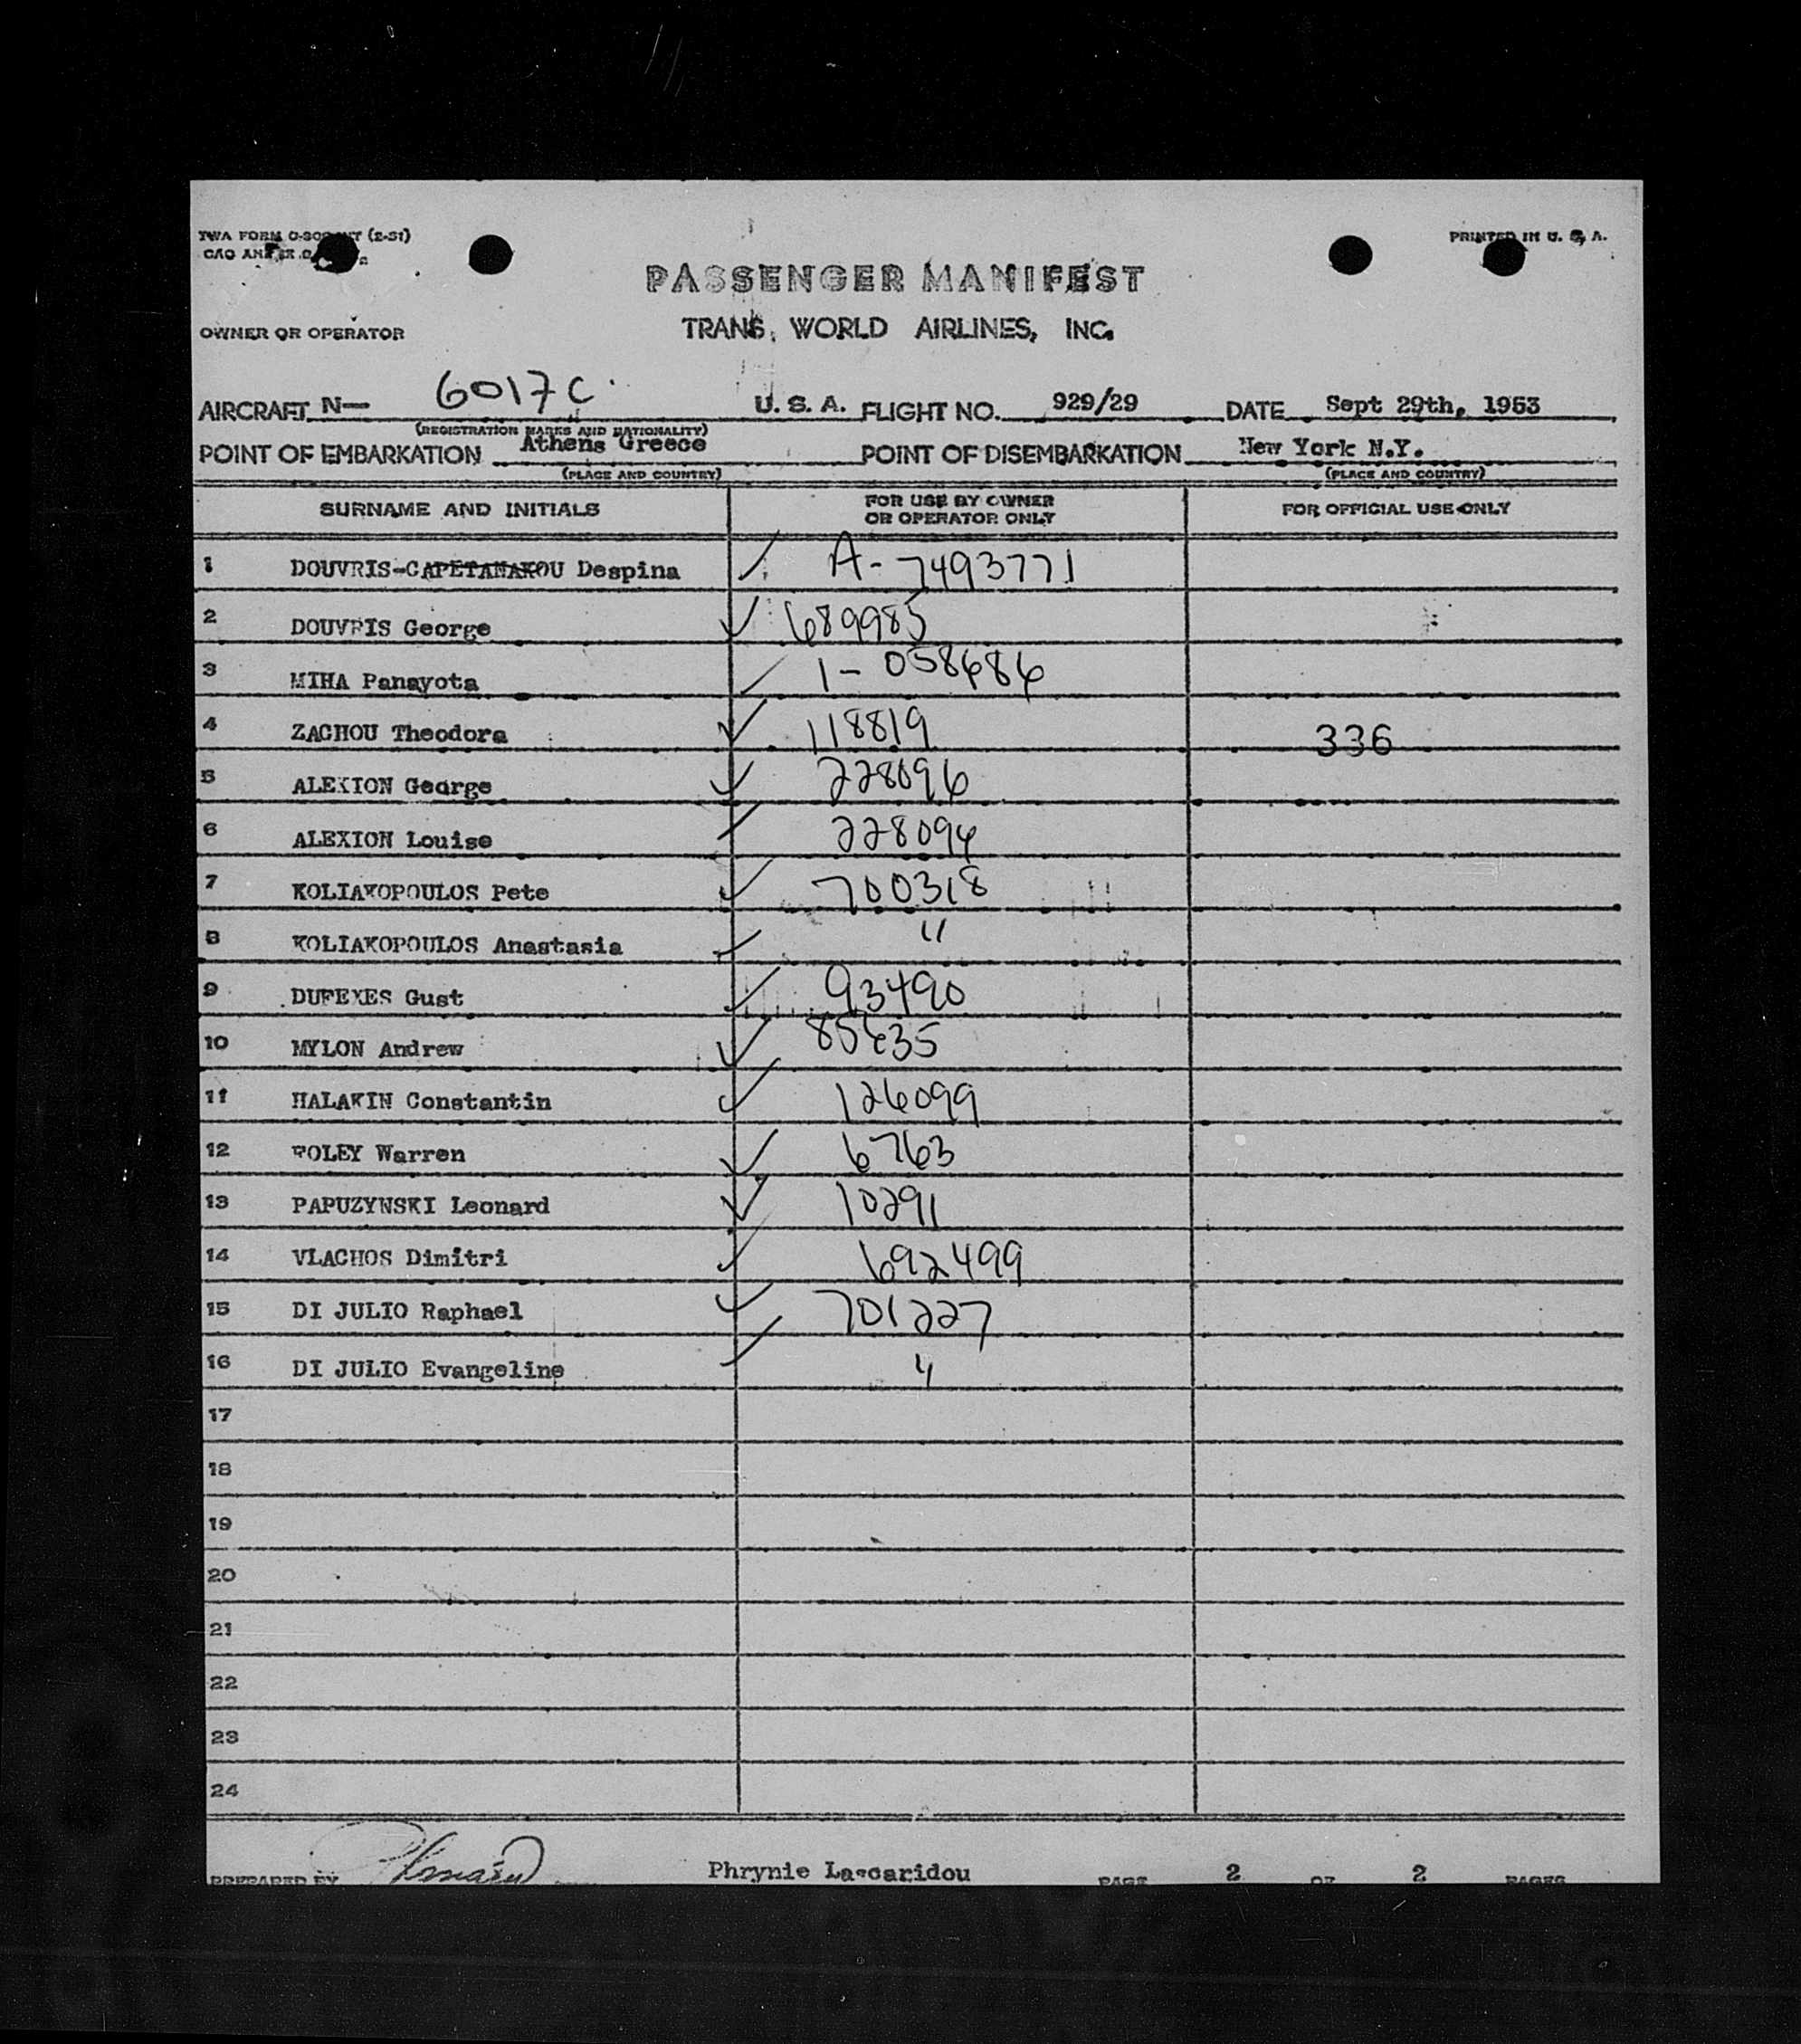 TWA FORM
PRINTED IN U. S. A.
PASSENGER MANIFEST
OWNER OR OPERATOR TRANS. WORLD AIRLINES, INC.
AIRCRAFT N— 6017C U. S. A. FLIGHT NO. 929/29 DATE Sept 29th, 1953
(REGISTRATION MARKS AND NATIONALITY)
POINT OF EMBARKATION Athens Greece POINT OF DISEMBARKATION New York N.Y.
(PLACE AND COUNTRY) (PLACE AND COUNTRY)
SURNAME AND INITIALS FOR USE BY OWNER OR OPERATOR ONLY FOR OFFICIAL USE ONLY
1 DOUVRIS-CAPETANAKOU Despina A-7493771
2 DOUVRIS George 689985
3 MIHA Panayota 1-058686
4 ZACHOU Theodora 118819 336
5 ALEXION George 228096
6 ALEXION Louise 228094
7 KOLIAKOPOULOS Pete 700318
8 KOLIAKOPOULOS Anastasia "
9 DUFEXES Gust 93490
10 MYLON Andrew
11 HALAKIN Constantin 126099
12 FOLEY Warren 6763
13 PAPUZYNSKI Leonard 10291
14 VLACHOS Dimitri 692499
15 DI JULIO Raphael 701227
16 DI JULIO Evangeline "
17
18
19
20
21
22
23
24
PREPARED BY Phrynie Lascaridou PAGE 2 OF 2 PAGES